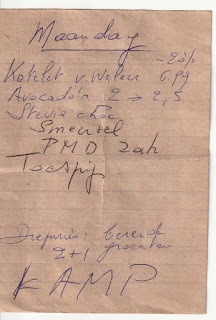 Maandag
-20%
Kotelet v. Welen 6.99
Avocado's 2 → 2,5
Stevia choc
Smeersel
PMD zak
Toespijs
Drepuris: bereide
2+1 groenten
KAMP